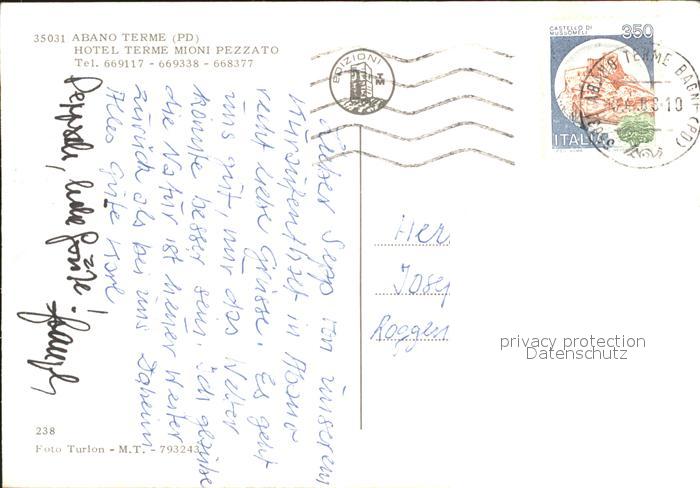 35031 ABANO TERME (PD)
HOTEL TERME MIONI PEZZATO
Tel. 669117 - 669338 - 668377
EDIZIONI
CASTELLO DI
MUSSOMELI
350
ITALIA
ABANO TERME
Lieber Sepp von unserem
Kuraufenthalt in Abano
recht liebe Grüsse. Es geht
uns gut, nur das Wetter
könnte besser sein. Ich glaube
die Natur ist hier weiter
zurück als bei uns Daheim
Alles Gute Karl
liebe Grüße!
Her
Josef
Roggen
privacy protection
Datenschutz
238
Foto Turlon - M.T. - 793243